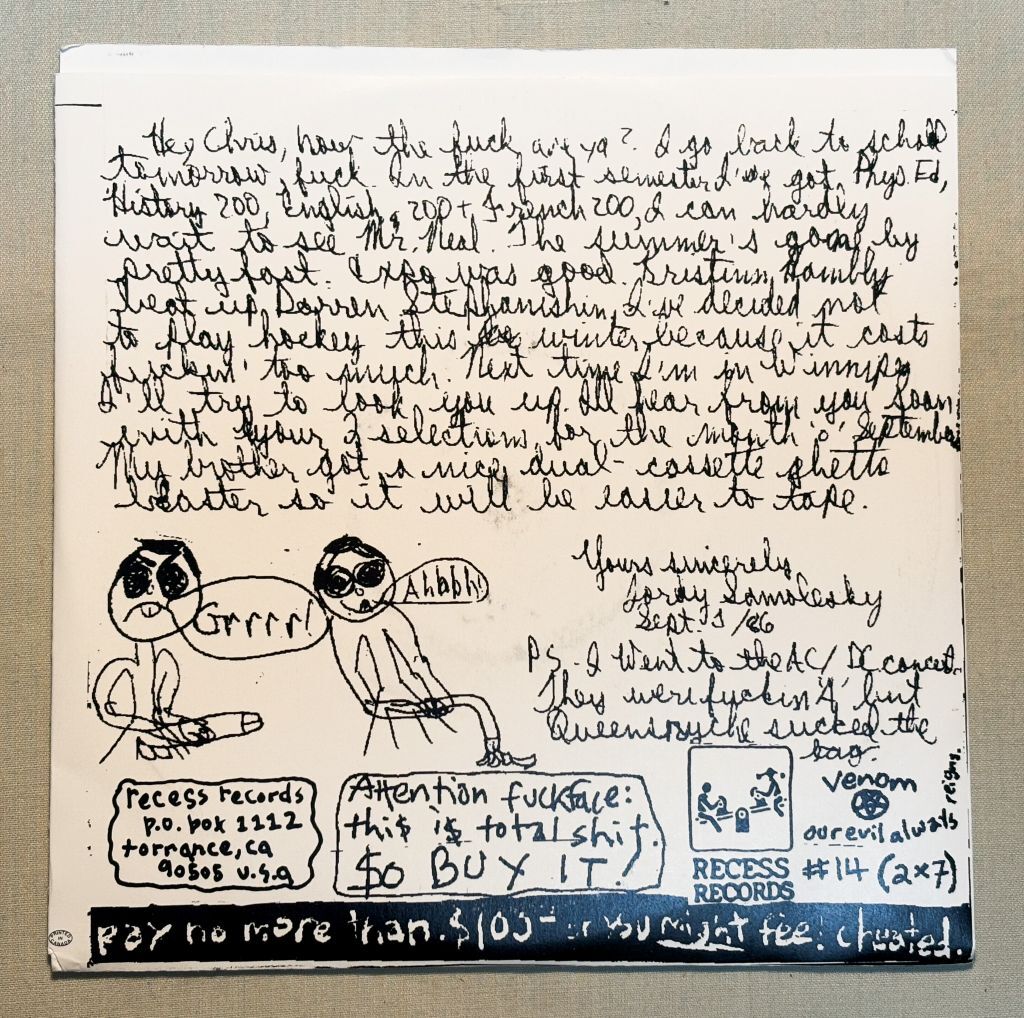 Hey Chris, how the fuck are ya? I go back to school
tomorrow, fuck. In the first semester I've got, Phys. Ed,
History 200, English, 200 + French 200, I can hardly
wait to see Mr. Neal. The summer's gone by
pretty fast. Expo was good. Kristinn Hambly
beat up Darren Stephanishin, I've decided not
to play hockey this winter because it costs
fuckin' too much. Next time I'm in Winnipeg
I'll try to look you up. I'll hear from you soon
with your 3 selections for the month o' September
My brother got a nice dual-cassette ghetto
blaster so it will be easier to tape.
Yours sincerely
Jordy Samolesky
Sept. 1/86
P.S. I Went to the AC/DC concert.
They were fuckin 'A' but
Queensryche sucked the
bag.
Grrrr!
Ahhhh!
recess records
p.o. box 1112
torrance, ca
90505 u.s.a
Attention fuckface:
this is total shit.
$o BUY IT!
RECESS
RECORDS
venom
our evil always reigns.
#14 (2x7)
pay no more than $100 or you might feel cheated.
PRINTED IN CANADA